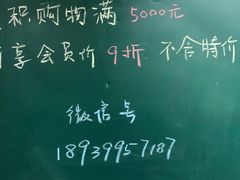 积购物满 5000元
享会员价 9折 不含特价
微信号
18939957187